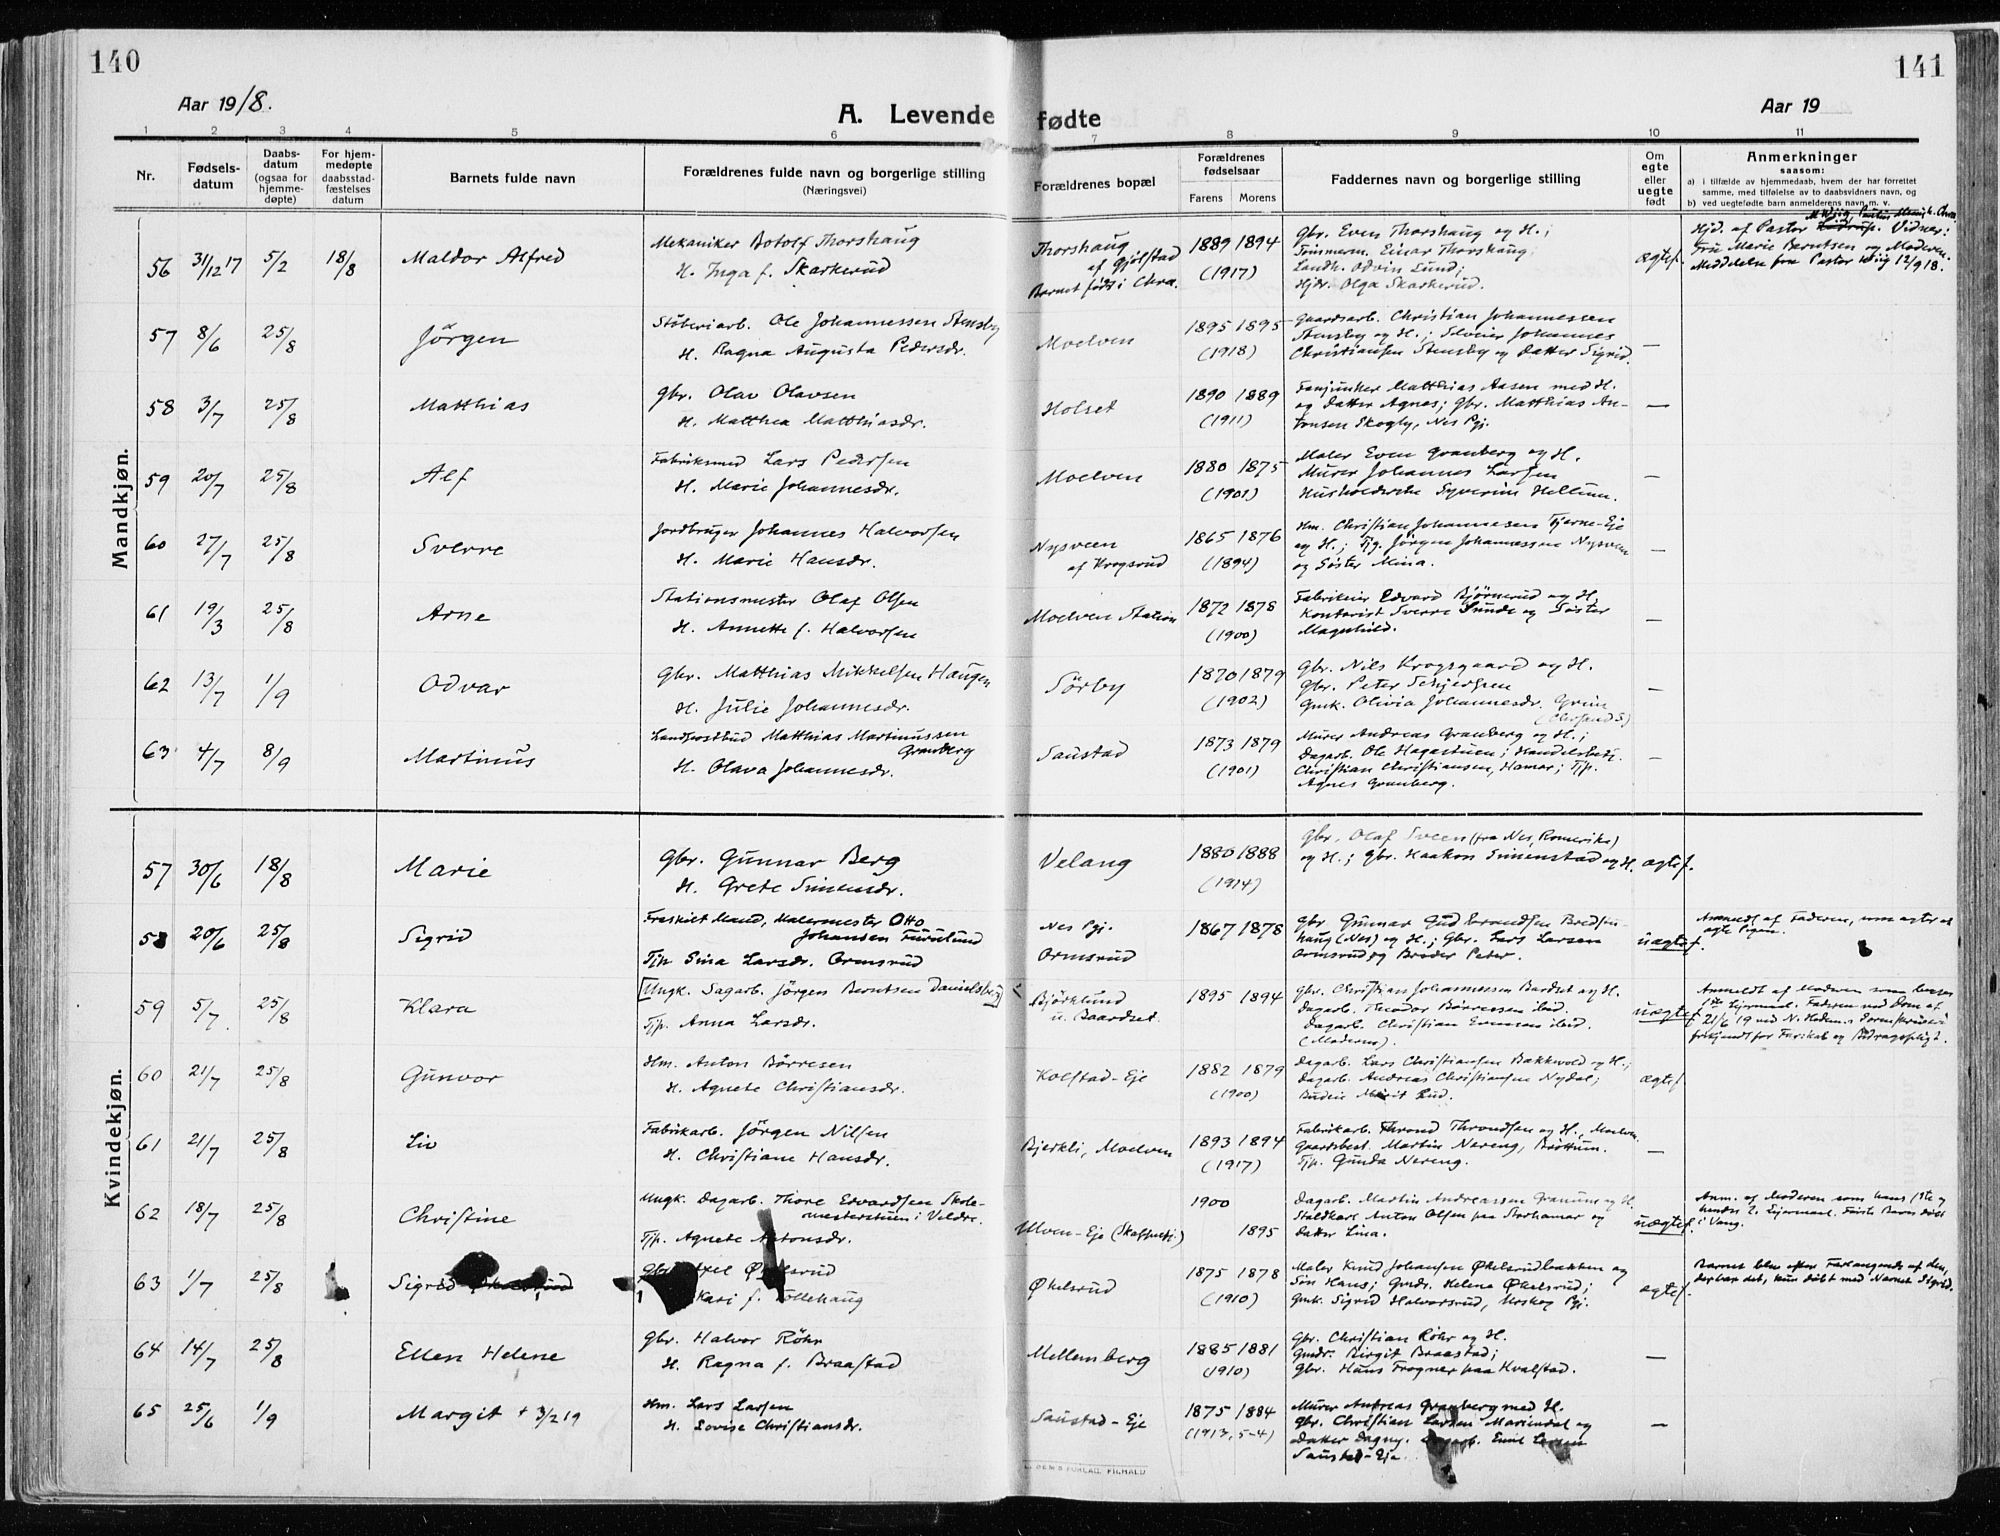 140
141
Aar 1918.
A. Levende fødte
Aar 19
1 2 3 4 5 6 7 8 9 10 11
Nr.
Fødsels-
datum
Daabs-
datum
(ogsaa for
hjemme-
døpte)
For hjem-
medøpte
daabsstad-
fæstelses
datum
Barnets fulde navn
Forældrenes fulde navn og borgerlige stilling
(Næringsvei)
Forældrenes bopæl
Forældrenes
fødselsaar
Farens Morens
Faddernes navn og borgerlige stilling
Om
egte
eller
uegte
født
Anmerkninger
saasom:
a) i tilfælde av hjemmedaab, hvem der har forrettet
samme, med tilføielse av to daabsvidners navn, og
b) ved uegtefødte barn anmelderens navn m. v.
Mandkjøn.
56 31/12 17 5/2 18/8 Maldor Alfred
Mekaniker Botolf Thorshaug
H. Inga f. Skarkerud
Thorshaug
af Gjølstad
Barnet født i Chra.
1889 1894
(1917)
Gbr. Even Thorshaug og H.;
Tømmerm. Einar Thorshaug;
Landh. Odvin Lund;
Hjdr. Olga Skarkerud.
ægtef.
Hjd. af Pastor Vidner:
Fru Marie Berntsen og Moderen.
Meddelelse fra Pastor Wiig 12/9 18.
57 8/6 25/8 Jörgen
Støberiarb. Ole Johannessen Stensby
H. Ragna Augusta Pedersdr.
Moelven
1895 1895
(1918)
Gaardsarb. Christian Johannessen
Stensby og H.; Sveiser Johannes
Christiansen Stensby og Datter Sigrid.
—
58 3/7 25/8 Matthias
Gbr. Olav Olavsen
H. Matthea Matthiasdr.
Holset
1890 1889
(1911)
Fanejunker Matthias Aasen med H.
og Datter Agnes; Gbr. Matthias An-
tonsen Skogby, Nes Pgj.
—
59 20/7 25/8 Alf
Fabriksmed Lars Pedersen
H. Marie Johannesdr.
Moelven
1880 1875
(1901)
Maler Even Granberg og H.
Murer Johannes Larsen
Husholderske Syverine Hellum.
—
60 27/7 25/8 Sverre
Jordbruger Johannes Halvorsen
H. Marie Hansdr.
Nysveen
af Krogsrud
1865 1876
(1894)
Hm. Christian Johannesen Tjerne-Eje
og H.; Tjg. Jørgen Johannessen Nysveen
og Søster Mina.
—
61 19/3 25/8 Arne
Stationsmester Olaf Olsen
H. Annette f. Halvorsen
Moelven Station
1872 1878
(1900)
Fabrikeier Edvard Bjørnerud og H.
Kontorist Sverre Lunde og Søster
Magnhild.
—
62 13/7 1/9 Odvar
Gbr. Matthias Mikkelsen Haugen
H. Julie Johannesdr.
Sörby
1870 1879
(1902)
Gbr. Nils Krogsgaard og H.
Gbr. Peter Schjerfsen
Gmk. Olivia Johannesdr. Grim
(Chrsand S.)
—
63 4/7 8/9 Martinus
Landpostbud Matthias Martinussen
Granberg
H. Olava Johannesdr.
Saustad
1873 1879
(1901)
Murer Andreas Granberg og H.;
Dagarb. Ole Hagastuen; Handelsbetj.
Christian Christiansen, Hamar; Tjp.
Agnes Granberg.
—
Kvindekjøn.
57 30/6 18/8 Marie
Gbr. Gunnar Berg
H. Grete Simensdr.
Velang
1880 1888
(1914)
Gbr. Olaf Sveen (fra Nes, Romerike)
og H.; Gbr. Haakon Simenstad og H.
ægtef.
58 20/6 25/8 Sigrid
Fraskilt Mand, Malermester Otto
Johansen Furulund
Tjp Sina Larsdr. Ormsrud
Nes Pgj.
Ormsrud
1867 1878
Gbr Gunnar Gudbrandsen Bredsve-
haug (Nes) og H.; Gbr. Lars Larsen
Ormsrud og Broder Peter.
uægtef.
Anmeldt af Faderen, som agter at
ægte Pigen.
59 5/7 25/8 Klara
[Ungk. Sagarb. Jørgen Berntsen Danielsberg]
Tjp. Anna Larsdr.
Björklund
u. Baardset.
1895 1894
Gbr. Christian Johannessen Bardset og H.
Dagarb. Theodor Børresen ibid.
Dagarb. Christian Evensen ibid.
(Moderen).
uægtef.
Anmeldt af Moderen som begges
1ste Lejermaal. Faderen ved Dom af
21/6 19 ved N. Hedem.s Sorenskriveri
frikjendt for Farskab og Bidragspligt.
60 21/7 25/8 Gunvor
Hm. Anton Börresen
H. Agnete Christiansdr.
Kolstad-Eje
1882 1879
(1900)
Dagarb. Lars Christiansen Bækkvold og H.;
Dagarb. Andreas Christiansen Nydal;
Budeie Marit Rud.
ægtef.
61 21/7 25/8 Liv
Fabrikarb. Jörgen Nilsen
H. Christiane Hansdr.
Bjerkli, Moelven
1893 1894
(1917)
Fabrikarb. Thrond Throndsen og H., Moelven.
Gaardsbest. Martin Nereng, Brøttum.
Tjp. Gunda Nereng.
—
62 18/7 25/8 Christine
Ungk. Dagarb. Thore Edvardsen Skole-
mesterstuen i Veldre.
Tjp. Agnete Antonsdr.
Ulven-Eje (Skappelsj.)
1900
1895
Dagarb. Martin Andreassen Granum og H.
Staldkarl Anton Olsen paa Storhamar og
Datter Lina.
uægtef.
Anm. af Moderen som hans 1ste og
hendes 2. Lejermaal. Første Barn døbt
i Vang.
63 1/7 25/8 Sigrid
Gbr. Axel Økelsrud
Kari f. Tollehaug
Økelsrud
1875 1878
(1910)
Maler Knud Johansen Økelsrudbakken og
Søn Hans; Gmdr. Helena Økelsrud;
Gmk. Sigrid Halvorsrud, Urskog Pgj.
ægtef.
Barnet blev efter Forlangende af den,
der bar det, kun døbt med Navnet Sigrid.
64 14/7 25/8 Ellen Helene
Gbr. Halvor Röhr
H. Ragna f. Braastad
Mellemberg
1885 1881
(1910)
Gbr. Christian Røhr og H.
Gmdr. Birgit Braastad;
Gbr. Hans Frogner paa Kvalstad.
—
65 25/6 1/9 Margit + 3/2 19
Hm. Lars Larsen
H. Lovise Christiansdr.
Saustad-Eje
1875 1884
(1913, 5-4)
Murer Andreas Granberg med H.
Gbr. Christian Larsen Mariendal og
Datter Dagny. Dagarb. Emil Larsen
Saustad-Eje.
—